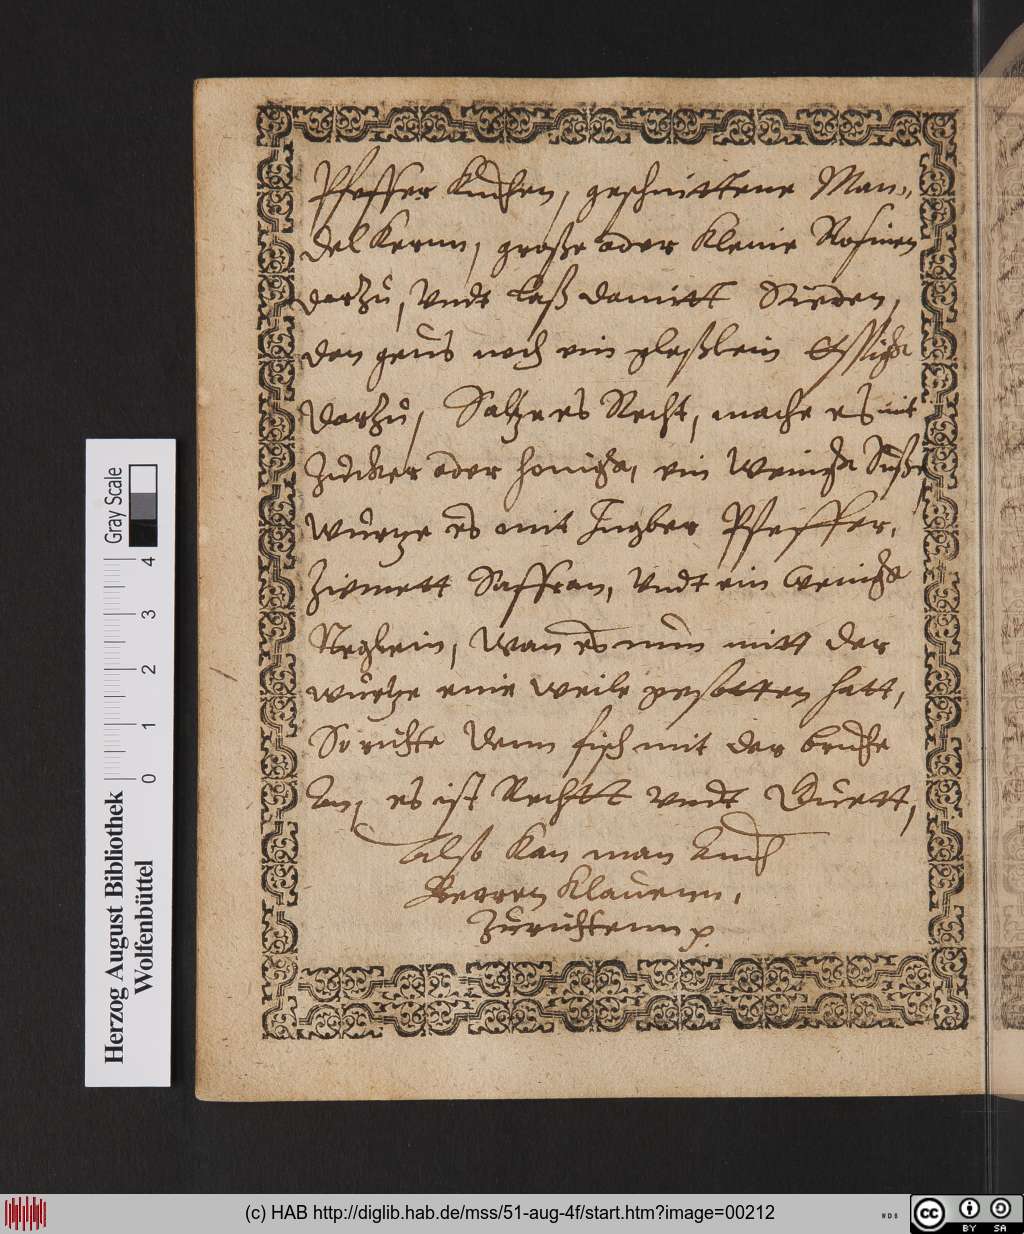 Pfeffer Kuchen, geschnittene Man=
del Kernn, große oder Kleine Rosinen
darzu, Vndt laß damitt Sieden,
dan geus noch ein gleßlein Essigk
darzu, Saltze es Recht, mache es mit
Zucker oder honigk, ein Wenigk Süße
Würtze es mit Ingber Pfeffer,
Zimett Saffran, Vndt ein Wenigk
Neglein, Wan es nun mitt der
würtze eine Weile gesotten hatt,
So richte denn fisch mit der bruhe
An, es ist Rechtt Vndt Guett,
Also Kan man Auch
Berren Klauenn,
Zurichtenn
Herzog August Bibliothek
Wolfenbüttel
Gray Scale
0 1 2 3 4
(c) HAB http://diglib.hab.de/mss/51-aug-4f/start.htm?image=00212
WDB
cc BY SA